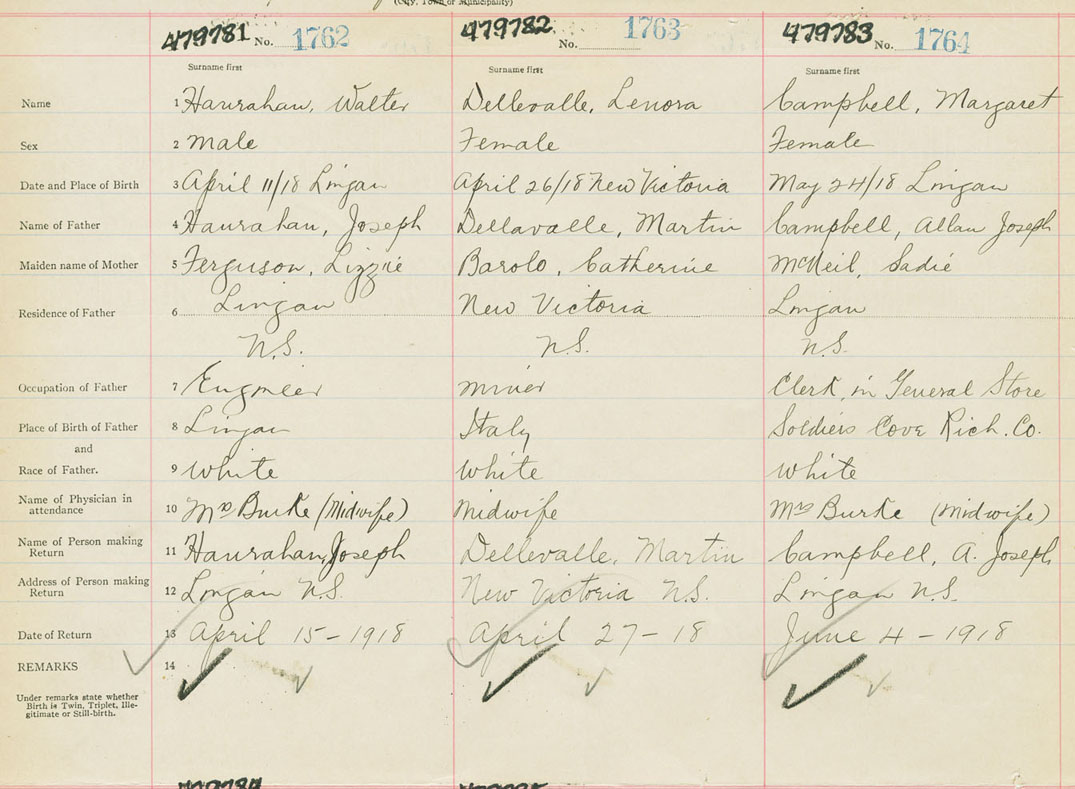 (City, Town or Municipality)
479781 No. 1762 479782 No. 1763 479783 No. 1764
Surname first Surname first Surname first
Name 1 Hanrahan, Walter Dellevalle, Lenora Campbell, Margaret
Sex 2 Male Female Female
Date and Place of Birth 3 April 11/18 Lingan April 26/18 New Victoria May 24/18 Lingan
Name of Father 4 Hanrahan, Joseph Dellavalle, Martin Campbell, Allan Joseph
Maiden name of Mother 5 Ferguson, Lizzie Barolo, Catherine McNeil, Sadie
Residence of Father 6 Lingan New Victoria Lingan
N.S. N.S. N.S.
Occupation of Father 7 Engineer Miner Clerk in General Store
Place of Birth of Father 8 Lingan Italy Soldiers Cove Rich. Co.
and
Race of Father. 9 White White White
Name of Physician in
attendance 10 Mrs Burke (Midwife) Midwife Mrs Burke (Midwife)
Name of Person making
Return 11 Hanrahan, Joseph Dellevalle, Martin Campbell, A. Joseph
Address of Person making
Return 12 Lingan N.S. New Victoria N.S. Lingan N.S.
Date of Return 13 April 15-1918 April 27-18 June 4-1918
REMARKS 14
Under remarks state whether
Birth is Twin, Triplet, Ille-
gitimate or Still-birth.